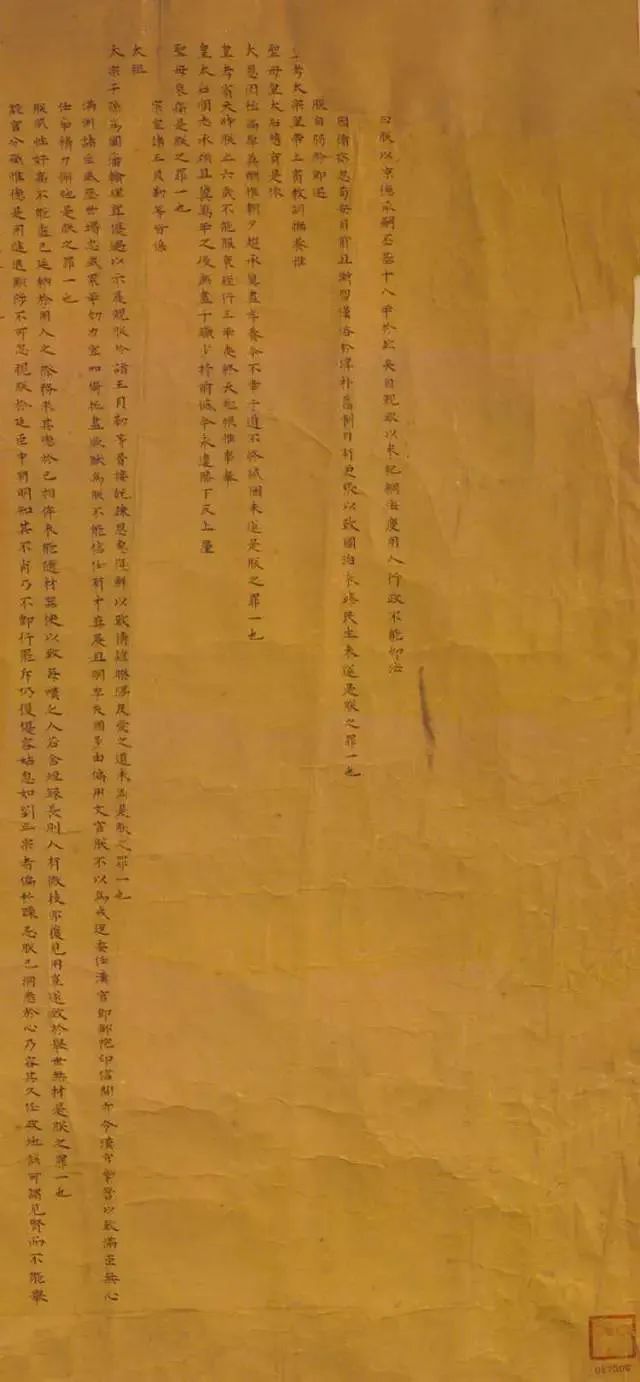 曰朕以涼德承嗣丕基十八年於茲矣自親政以來紀綱法度用人行政不能仰法
因循悠忽苟安目前且漸習漢俗於淳朴舊制日有更張以致國治未臻民生未遂是朕之罪一也
朕自弱齡即遇
考太宗皇帝上賓教訓撫養惟
聖母皇太后慈育是依
大恩罔極高厚莫酬惟朝夕趨承冀盡孝養今不幸子道不終誠悃未遂是朕之罪一也
皇考賓天時朕止六歲不能服衰絰行三年喪終天抱憾惟事奉
皇太后順志承顏且冀萬年之後庶盡子職少抒前憾今永違膝下反上廑
聖母哀痛是朕之罪一也
宗室諸王貝勒等皆係
太祖
太宗子孫為國藩翰理宜優遇以示展親朕於諸王貝勒等晉接既疎恩惠復鮮以致情誼睽隔友愛之道未周是朕之罪一也
滿洲諸臣或歷世竭忠或累年効力宜加倚托盡厥猷為朕不能信任有才莫展且明季失國多由偏用文官朕不以為戒反委任漢官即部院印信間亦令漢官掌管以致滿臣無心
任事精力懈弛是朕之罪一也
朕夙性好高不能虛己延納於用人之際務求其德於己相侔未能隨材器使以致每嘆乏人若舍短錄長則人有微技亦獲見用豈遂致於舉世無材是朕之罪一也
設官分職惟德是用進退黜陟不可忽視朕於廷臣中有明知其不肖乃不即行罷斥仍復優容姑息如劉正宗者偏於躁忌朕已洞悉於心乃容其久任政地誠可謂見賢而不能舉